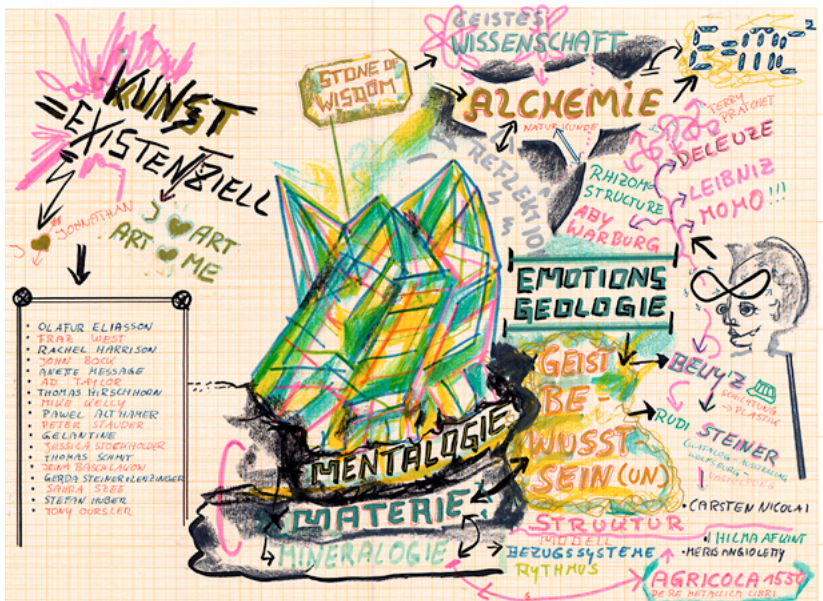 KUNST
=EXISTENZIELL
JOHNATHAN
J ART
ART ME
OLAFUR ELIASSON
FRAZ WEST
RACHEL HARRISON
JOHN BOCK
ANETTE MESSAGE
AD TAYLOR
THOMAS HIRSCHHORN
MIKE KELLY
PAWEL ALTHAMER
PETER STAUDER
GELANTINE
JESSICA STOCKHOLDER
THOMAS SCHMIT
GERDA STEINER & LENZINGER
SARRA SZEE
STEFAN HUBER
TONY OURSLER
STONE OF
WISDOM
GEISTES
WISSENSCHAFT
E=MC²
ALCHEMIE
NATURKUNDE
REFLEKTIO
TERRY
PRATCHET
DELEUZE
RHIZOM-
STRUCTURE
LEIBNIZ
MOMO!!!
ABY
WARBURG
EMOTIONS
GEOLOGIE
GEIST
BE-
WUSST-
SEIN (UN)
BEUY'Z
SCHICHTUNG
→ PLASTIK
RUDI STEINER
WOLFSBURG
CARSTEN NICOLAI
MENTALOGIE
MATERIE
MINERALOGIE
STRUKTUR
MODELL
BEZUGSSYSTEME
RYTHMUS
HILMA AF
AGRICOLA 1550
DE RE METALLICA LIBRI